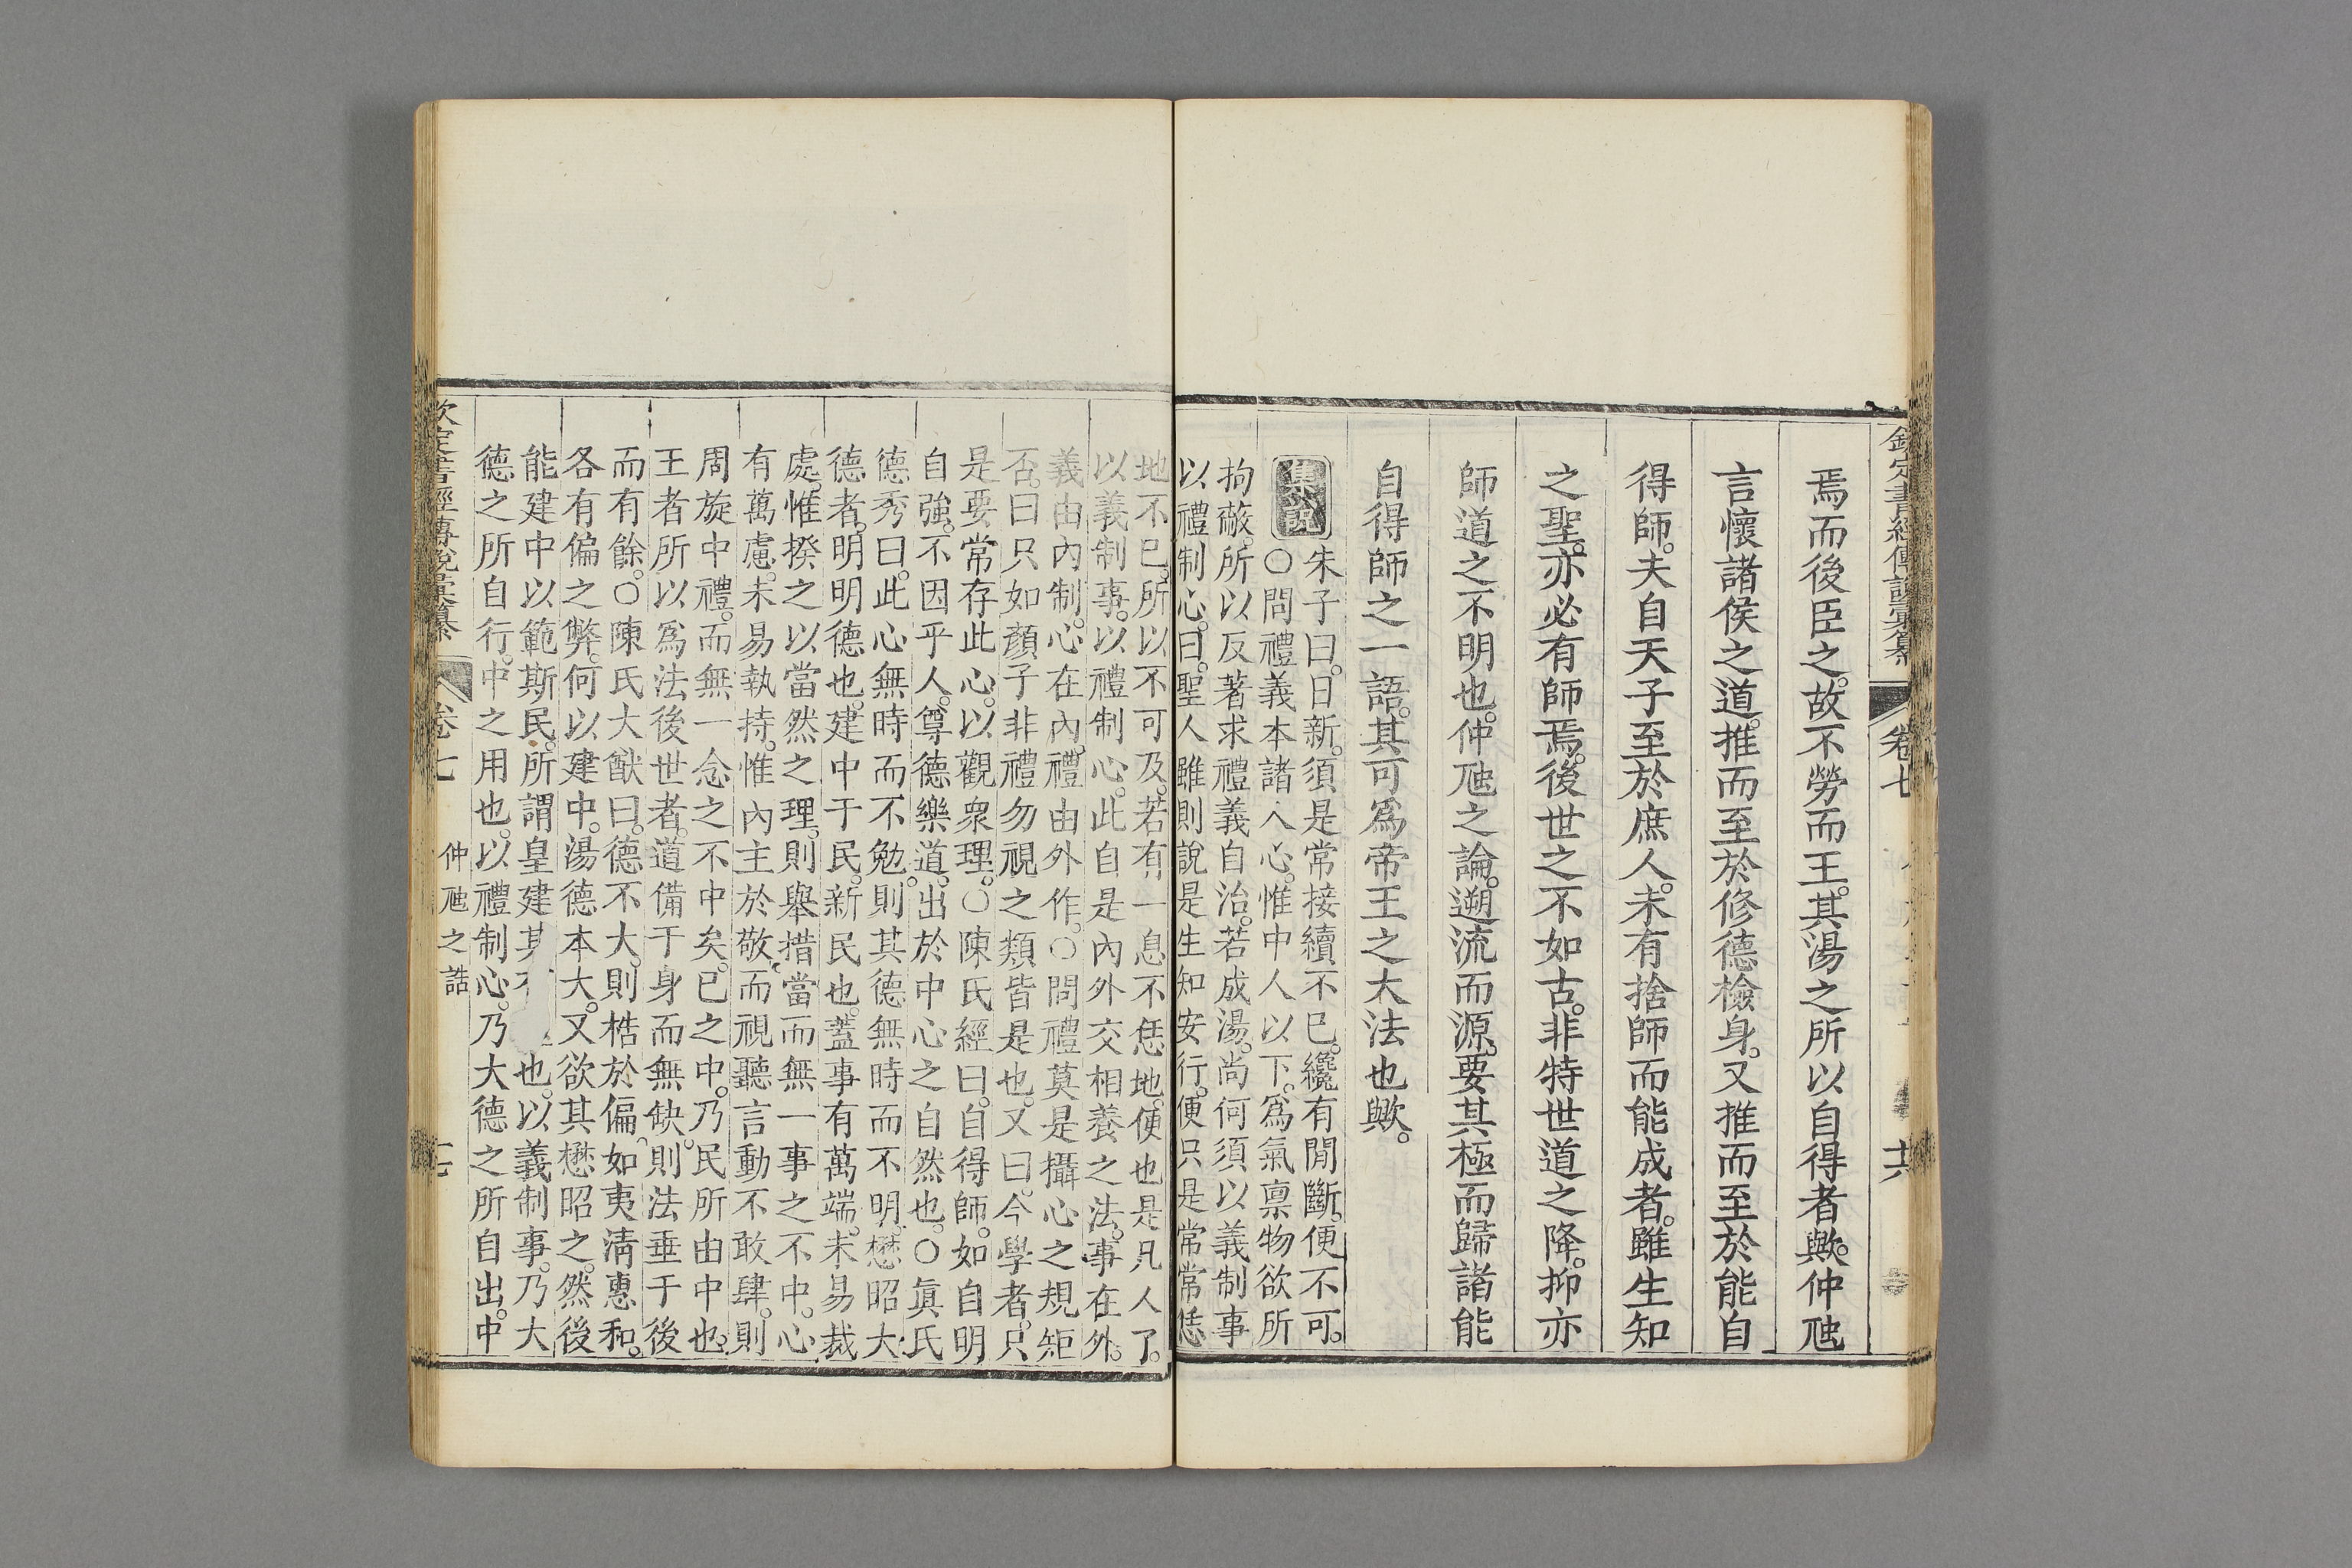 欽定書經傳說彙纂 卷七 十六
焉而後臣之。故不勞而王。其湯之所以自得者歟。仲虺
言懷諸侯之道。推而至於修德檢身。又推而至於能自
得師。夫自天子至於庶人。未有捨師而能成者。雖生知
之聖。亦必有師焉。後世之不如古。非特世道之降。抑亦
師道之不明也。仲虺之論。遡流而源。要其極而歸諸能
自得師之一語。其可爲帝王之大法也歟。
集說 朱子曰。日新。須是常接續不已。纔有閒斷。便不可。
○問禮義本諸人心。惟中人以下。爲氣禀物欲所
拘蔽。所以反著求禮義自治。若成湯。尚何須以義制事
以禮制心。曰。聖人雖則說是生知安行。便只是常常恁
地不已。所以不可及。若有一息不恁地。便也是凡人了。
以義制事。以禮制心。此自是內外交相養之法。事在外。
義由內制。心在內。禮由外作。○問禮莫是攝心之規矩
否。曰只如顏子非禮勿視之類皆是也。又曰。今學者。只
是要常存此心。以觀衆理。○陳氏經曰。自得師。如自明
自強。不因乎人。尊德樂道。出於中心之自然也。○眞氏
德秀曰。此心無時而不勉。則其德無時而不明。懋昭大
德者。明明德也。建中于民。新民也。蓋事有萬端。未易裁
處。惟揆之以當然之理。則舉措當而無一事之不中。心
有萬慮。未易執持。惟內主於敬而視聽言動不敢肆。則
周旋中禮。而無一念之不中矣。已之中。乃民所由中也。
王者所以爲法後世者。道備于身而無缺。則法垂于後
而有餘。○陳氏大猷曰。德不大。則梏於偏。如夷淸惠和。
各有偏之弊。何以建中。湯德本大。又欲其懋昭之。然後
能建中以範斯民。所謂皇建其有也。以義制事。乃大
德之所自行。中之用也。以禮制心。乃大德之所自出。中
欽定書經傳說彙纂 卷七 仲虺之誥 十七